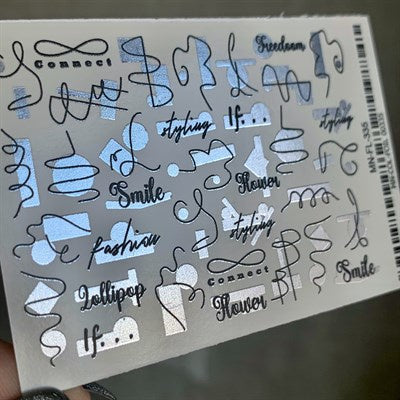 Connect
Freedoom
styling
If...
styling
Smile
Flower
fashion
styling
Connect
Lollipop
Flower
Smile
If...
MN-FL-335